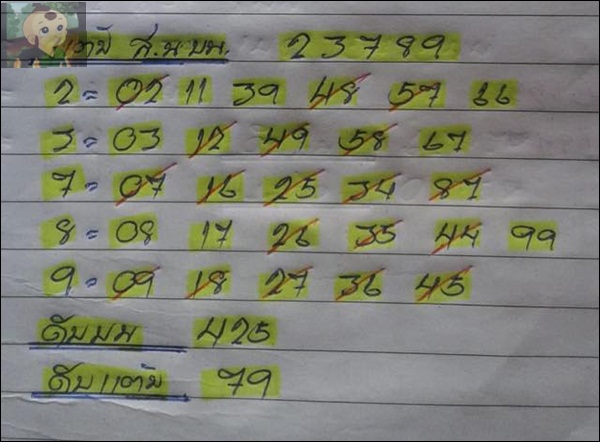 แต้ม ส.น.บน. 23789
2 = 02 11 39 48 57 66
3 = 03 12 49 58 67
7 = 07 16 25 34 87
8 = 08 17 26 35 44 99
9 = 09 18 27 36 45
ดับบน 425
ดับแต้ม 79